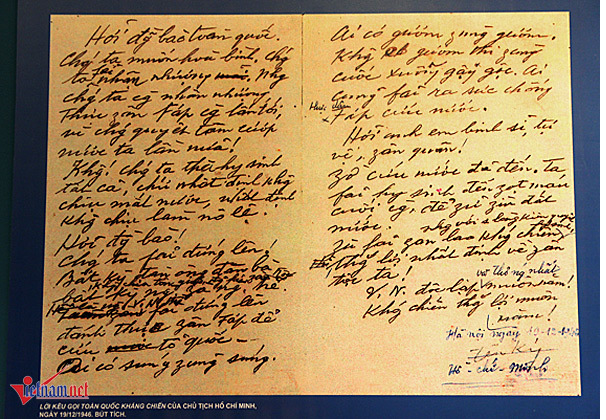 Hỡi đg bào toàn quốc.
Chg ta muốn hoà bình. Chg
ta fải nhân nhượng. Nhg
chg ta cg nhân nhượng
thực zân Fáp cg lấn tới,
vì chg quyết tâm cướp
nước ta lần nữa!
Khg! Chg ta thà hy sinh
tất cả, chứ nhất định khg
chịu mất nước, nhất định
khg chịu làm nô lệ!
Hỡi đg bào!
Chg ta fải đứng lên!
Bất kỳ đàn ông đàn bà
fải đứng lên
đánh thực zân Fáp để
cứu tổ quốc –
Ai có súng zùng súng.
Ai có gươm zùng gươm.
Khg có gươm thì zùng
cuốc xuổng gậy gộc. Ai
cũng fải ra sức chống
thực zân Fáp cứu nước.
Hỡi anh em binh sĩ, tự
vệ, zân quân!
Zờ cứu nước đã đến. Ta
fải hy sinh đến zọt máu
cuối cg, để zữ zìn đất
nước.
Zù fải zan lao khg chiến,
thg lợi nhất định về zân
tộc ta!
V.N. độc lập và thống nhất muôn năm!
Khg chiến thg lợi muôn
năm!
Hà nội ngày 19-12-1946
Hồ-chí-Minh
Vietnam.net
LỜI KÊU GỌI TOÀN QUỐC KHÁNG CHIẾN CỦA CHỦ TỊCH HỒ CHÍ MINH,
NGÀY 19/12/1946. BÚT TÍCH.